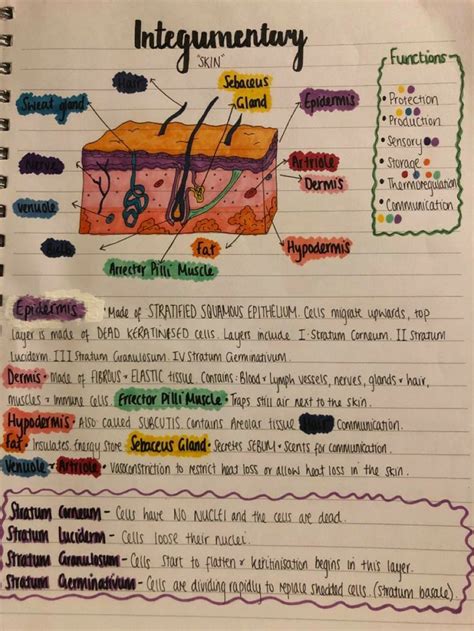 Integumentary
"SKIN"
Functions
• Protection
• Production
• Sensory
• Storage
• Thermoregulation
• Communication
Hair
Sebaceus
Gland
Sweat gland
Epidermis
Nerve
Artriole
Dermis
Venuole
Fat
Hypodermis
Arrector Pilli Muscle
Epidermis • Made of STRATIFIED SQUAMOUS EPITHELIUM. Cells migrate upwards, top
layer is made of DEAD KERATINESED cells. Layers include I. Stratum Corneum. II Stratum
Luciderm III Stratum Granulosum. IV Stratum Germinativum.
Dermis • Made of FIBROUS + ELASTIC tissue. Contains: Blood + Lymph vessels, nerves, glands + hair,
muscles + Immune cells. Errector Pilli Muscle • Traps still air next to the skin.
Hypodermis • Also called SUBCUTIS. Contains Areolar tissue Hair • Communication.
Fat • Insulates. Energy Store Sebaceus Gland • Secretes SEBUM + Scents for communication.
Venuole + Artriole • Vasoconstriction to restrict heat loss or allow heat loss in the skin.
Stratum Corneum - Cells have NO NUCLEI and the cells are dead.
Stratum Luciderm - Cells loose their nuclei.
Stratum Granulosum - Cells start to flatten + keritinisation begins in this layer.
Stratum Germinativum - Cells are dividing rapidly to replace shedded cells. (stratum basale)